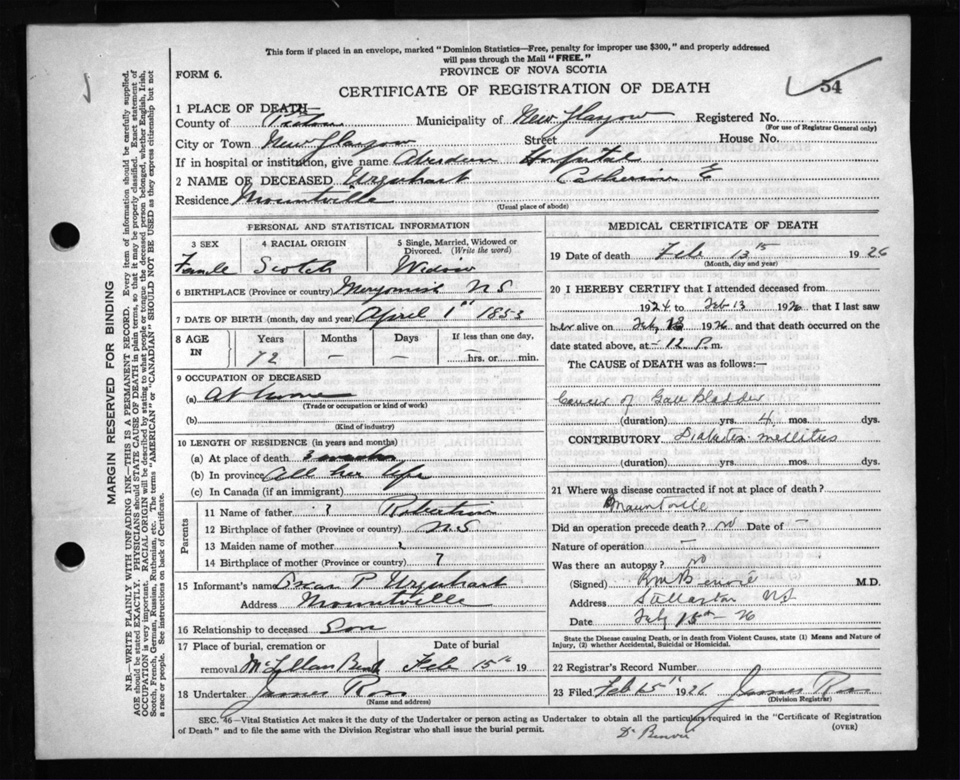 This form if placed in an envelope, marked "Dominion Statistics—Free, penalty for improper use $300," and properly addressed
will pass through the Mail "FREE."
FORM 6.
PROVINCE OF NOVA SCOTIA
CERTIFICATE OF REGISTRATION OF DEATH
54
1 PLACE OF DEATH—
County of Pictou Municipality of New Glasgow Registered No.
(For use of Registrar General only)
City or Town New Glasgow Street House No.
If in hospital or institution, give name Aberdeen Hospital
2 NAME OF DECEASED Urquhart Catherine E
Residence Mountville
(Usual place of abode)
PERSONAL AND STATISTICAL INFORMATION
3 SEX 4 RACIAL ORIGIN 5 Single, Married, Widowed or
Divorced. (Write the word)
Female Scotch Widow
6 BIRTHPLACE (Province or country) N S
7 DATE OF BIRTH (month, day and year) April 1st 1853
8 AGE IN Years Months Days If less than one day,
72 — — — hrs. or min.
9 OCCUPATION OF DECEASED
(a) At home
(Trade or occupation or kind of work)
(b)
(Kind of industry)
10 LENGTH OF RESIDENCE (in years and months)
(a) At place of death
(b) In province All her life
(c) In Canada (if an immigrant)
Parents
11 Name of father ? Robertson
12 Birthplace of father (Province or country) N.S
13 Maiden name of mother ?
14 Birthplace of mother (Province or country) ?
15 Informant's name P Urquhart
Address Mountville
16 Relationship to deceased Son
17 Place of burial, cremation or Date of burial
removal Feb 15th 19
18 Undertaker James Ross
(Name and address)
MEDICAL CERTIFICATE OF DEATH
19 Date of death Feb 13th 1926
(Month, day and year)
20 I HEREBY CERTIFY that I attended deceased from
1924 to Feb 13 1926 that I last saw
her alive on Feby 13 1926 and that death occurred on the
date stated above, at — 12 P.m.
The CAUSE of DEATH was as follows:—
Cancer of Gall Bladder
(duration) yrs. 4 mos. dys.
CONTRIBUTORY Diabetes mellitus
(duration) yrs. mos. dys.
21 Where was disease contracted if not at place of death?
Mountville
Did an operation precede death? no Date of —
Nature of operation —
Was there an autopsy? no
(Signed) M.D.
Address Stellarton NS
Date Feby 15th 26
State the Disease causing Death, or in death from Violent Causes, state (1) Means and Nature of
Injury, (2) whether Accidental, Suicidal or Homicidal.
22 Registrar's Record Number
23 Filed Feb 15th 1926 James Ross
(Division Registrar)
SEC. 46—Vital Statistics Act makes it the duty of the Undertaker or person acting as Undertaker to obtain all the particulars required in the "Certificate of Registration
of Death" and to file the same with the Division Registrar who shall issue the burial permit.
(OVER)
MARGIN RESERVED FOR BINDING
N.B.—WRITE PLAINLY WITH UNFADING INK—THIS IS A PERMANENT RECORD. Every item of information should be carefully supplied.
AGE should be stated EXACTLY. PHYSICIANS should STATE CAUSE OF DEATH in plain terms, so that it may be properly classified. Exact statement of
OCCUPATION is very important. RACIAL ORIGIN will be described by stating to what people or tongue the deceased person belonged, whether English, Irish,
Scotch, French, German, Russian, Ruthenian, etc. The terms "AMERICAN" or "CANADIAN" SHOULD NOT BE USED as they express citizenship but not
a race or people. See instructions on back of Certificate.